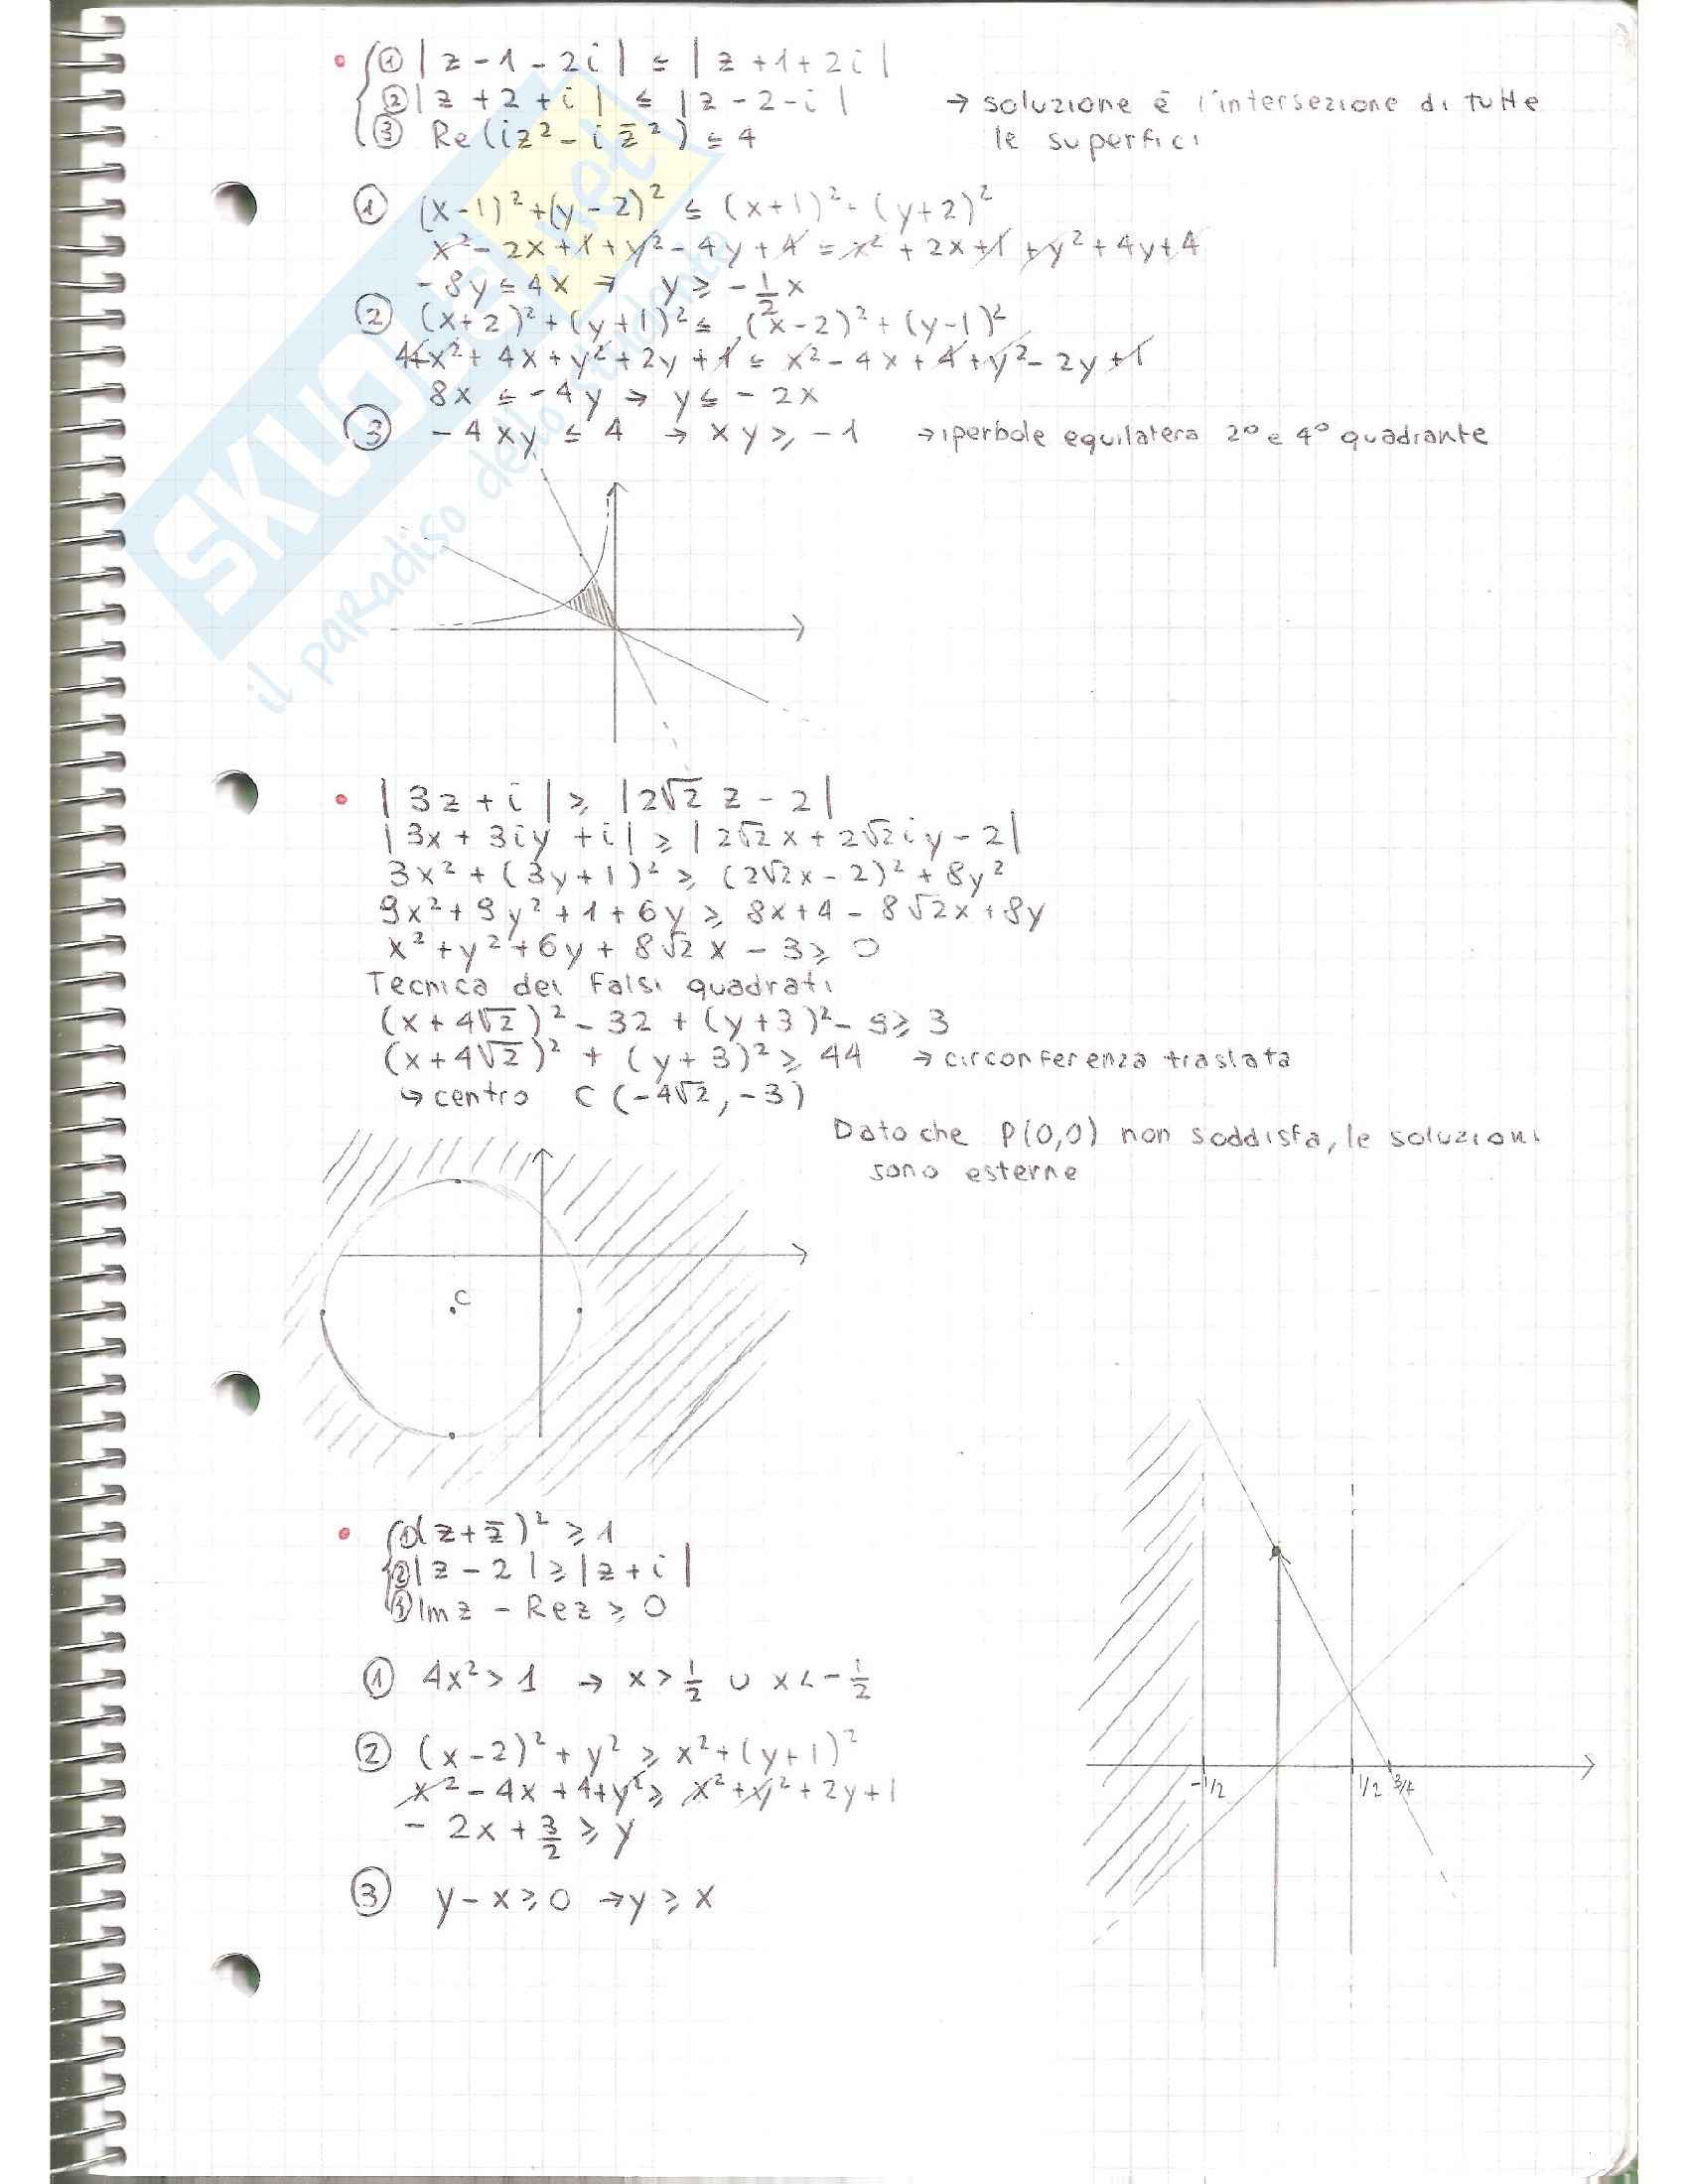 ① |z-1-2i| ≤ |z+1+2i|
② |z+2+i| ≤ |z-2-i| → soluzione è l'intersezione di tutte
③ Re(iz²-i z̄²) ≤ 4 le superfici
① (x-1)²+(y-2)² ≤ (x+1)²-(y+2)²
x²-2x+1+y²-4y+4=x²+2x+1+y²+4y+4
-8y≤4x → y≥-1/2x
② (x+2)²+(y+1)²≤(x-2)²+(y-1)²
4+x²+4x+y²+2y+1≤x²-4x+4+y²-2y+1
8x≤-4y → y≤-2x
③ -4xy≤4 → xy≥-1 → iperbole equilatera 2° e 4° quadrante
SKUOLA.net
il paradiso dello studente
|3z+i| ≥ |2√2 z-2|
|3x+3iy+i| ≥ |2√2x+2√2iy-2|
3x²+(3y+1)² ≥ (2√2x-2)²+8y²
9x²+9y²+1+6y ≥ 8x+4-8√2x+8y
x²+y²+6y+8√2x-3≥0
Tecnica dei falsi quadrati
(x+4√2)²-32+(y+3)²-9≥3
(x+4√2)²+(y+3)²≥44 → circonferenza traslata
↳ centro C(-4√2,-3)
Dato che P(0,0) non soddisfa, le soluzioni
sono esterne
C
① (z+z̄)²≥1
② |z-2|≥|z+i|
③ Imz-Rez≥0
① 4x²>1 → x>1/2 ∪ x<-1/2
② (x-2)²+y²≥x²+(y+1)²
x²-4x+4+y²≥x²+y²+2y+1
-2x+3/2≥y
③ y-x≥0 → y≥x
-1/2 1/2 3/4